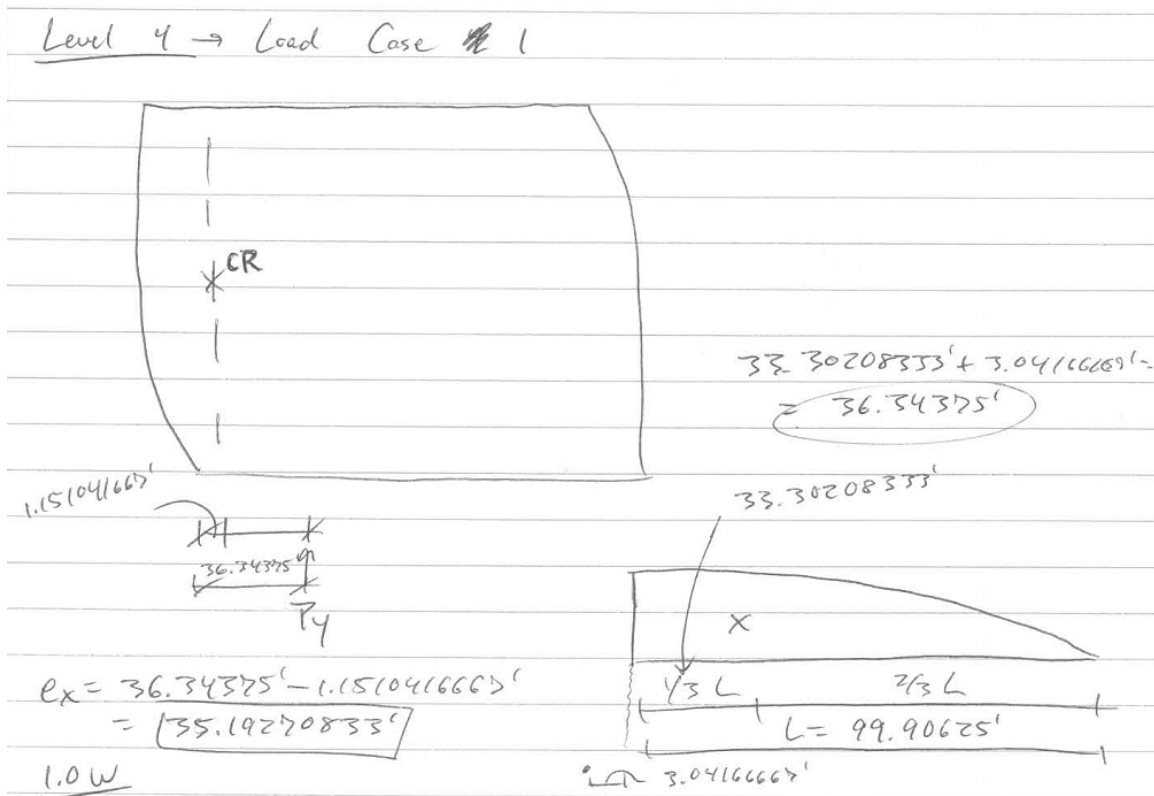 Level 4 → Load Case 1
CR
33.30208333' + 3.04166667' =
= 36.34375'
1.151041667'
33.30208333'
36.34375'
Py
X
1/3 L
2/3 L
ex = 36.34375' - 1.1510416667'
= 35.19270833'
L = 99.90625'
1.0 W
3.04166667'